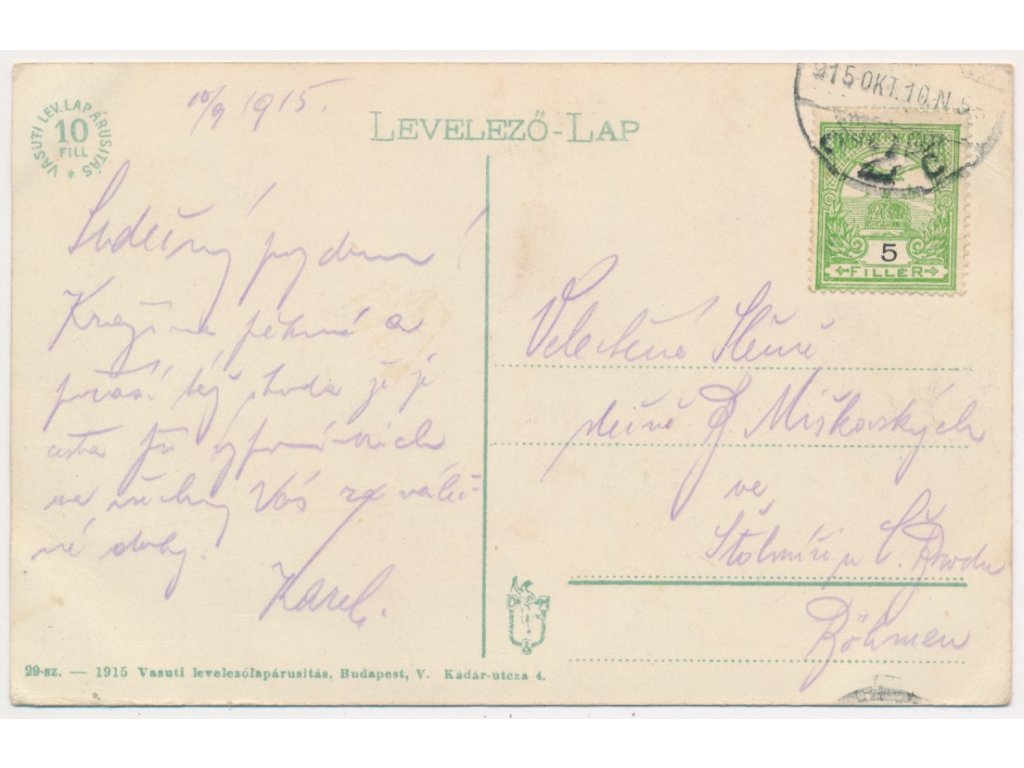 VASUTI LEV. LAP ÁRUSITÁS *
10
FILL
10/9 1915.
LEVELEZŐ-LAP
915 OKT. 10. N. 5
5
FILLÉR
Srdečný pozdrav!
Krajina pěkná a
počasí též shoda že je
cesta při vzpomínkách
na všechny Vás za váleč-
né doby.
Karel.
Velectěné Slečně
slečně B Miškovských
ve
Štolmíři u Č. Brodu
Böhmen
29-sz. — 1915 Vasuti levelezőlapárusitás, Budapest, V. Kádár-utcza 4.